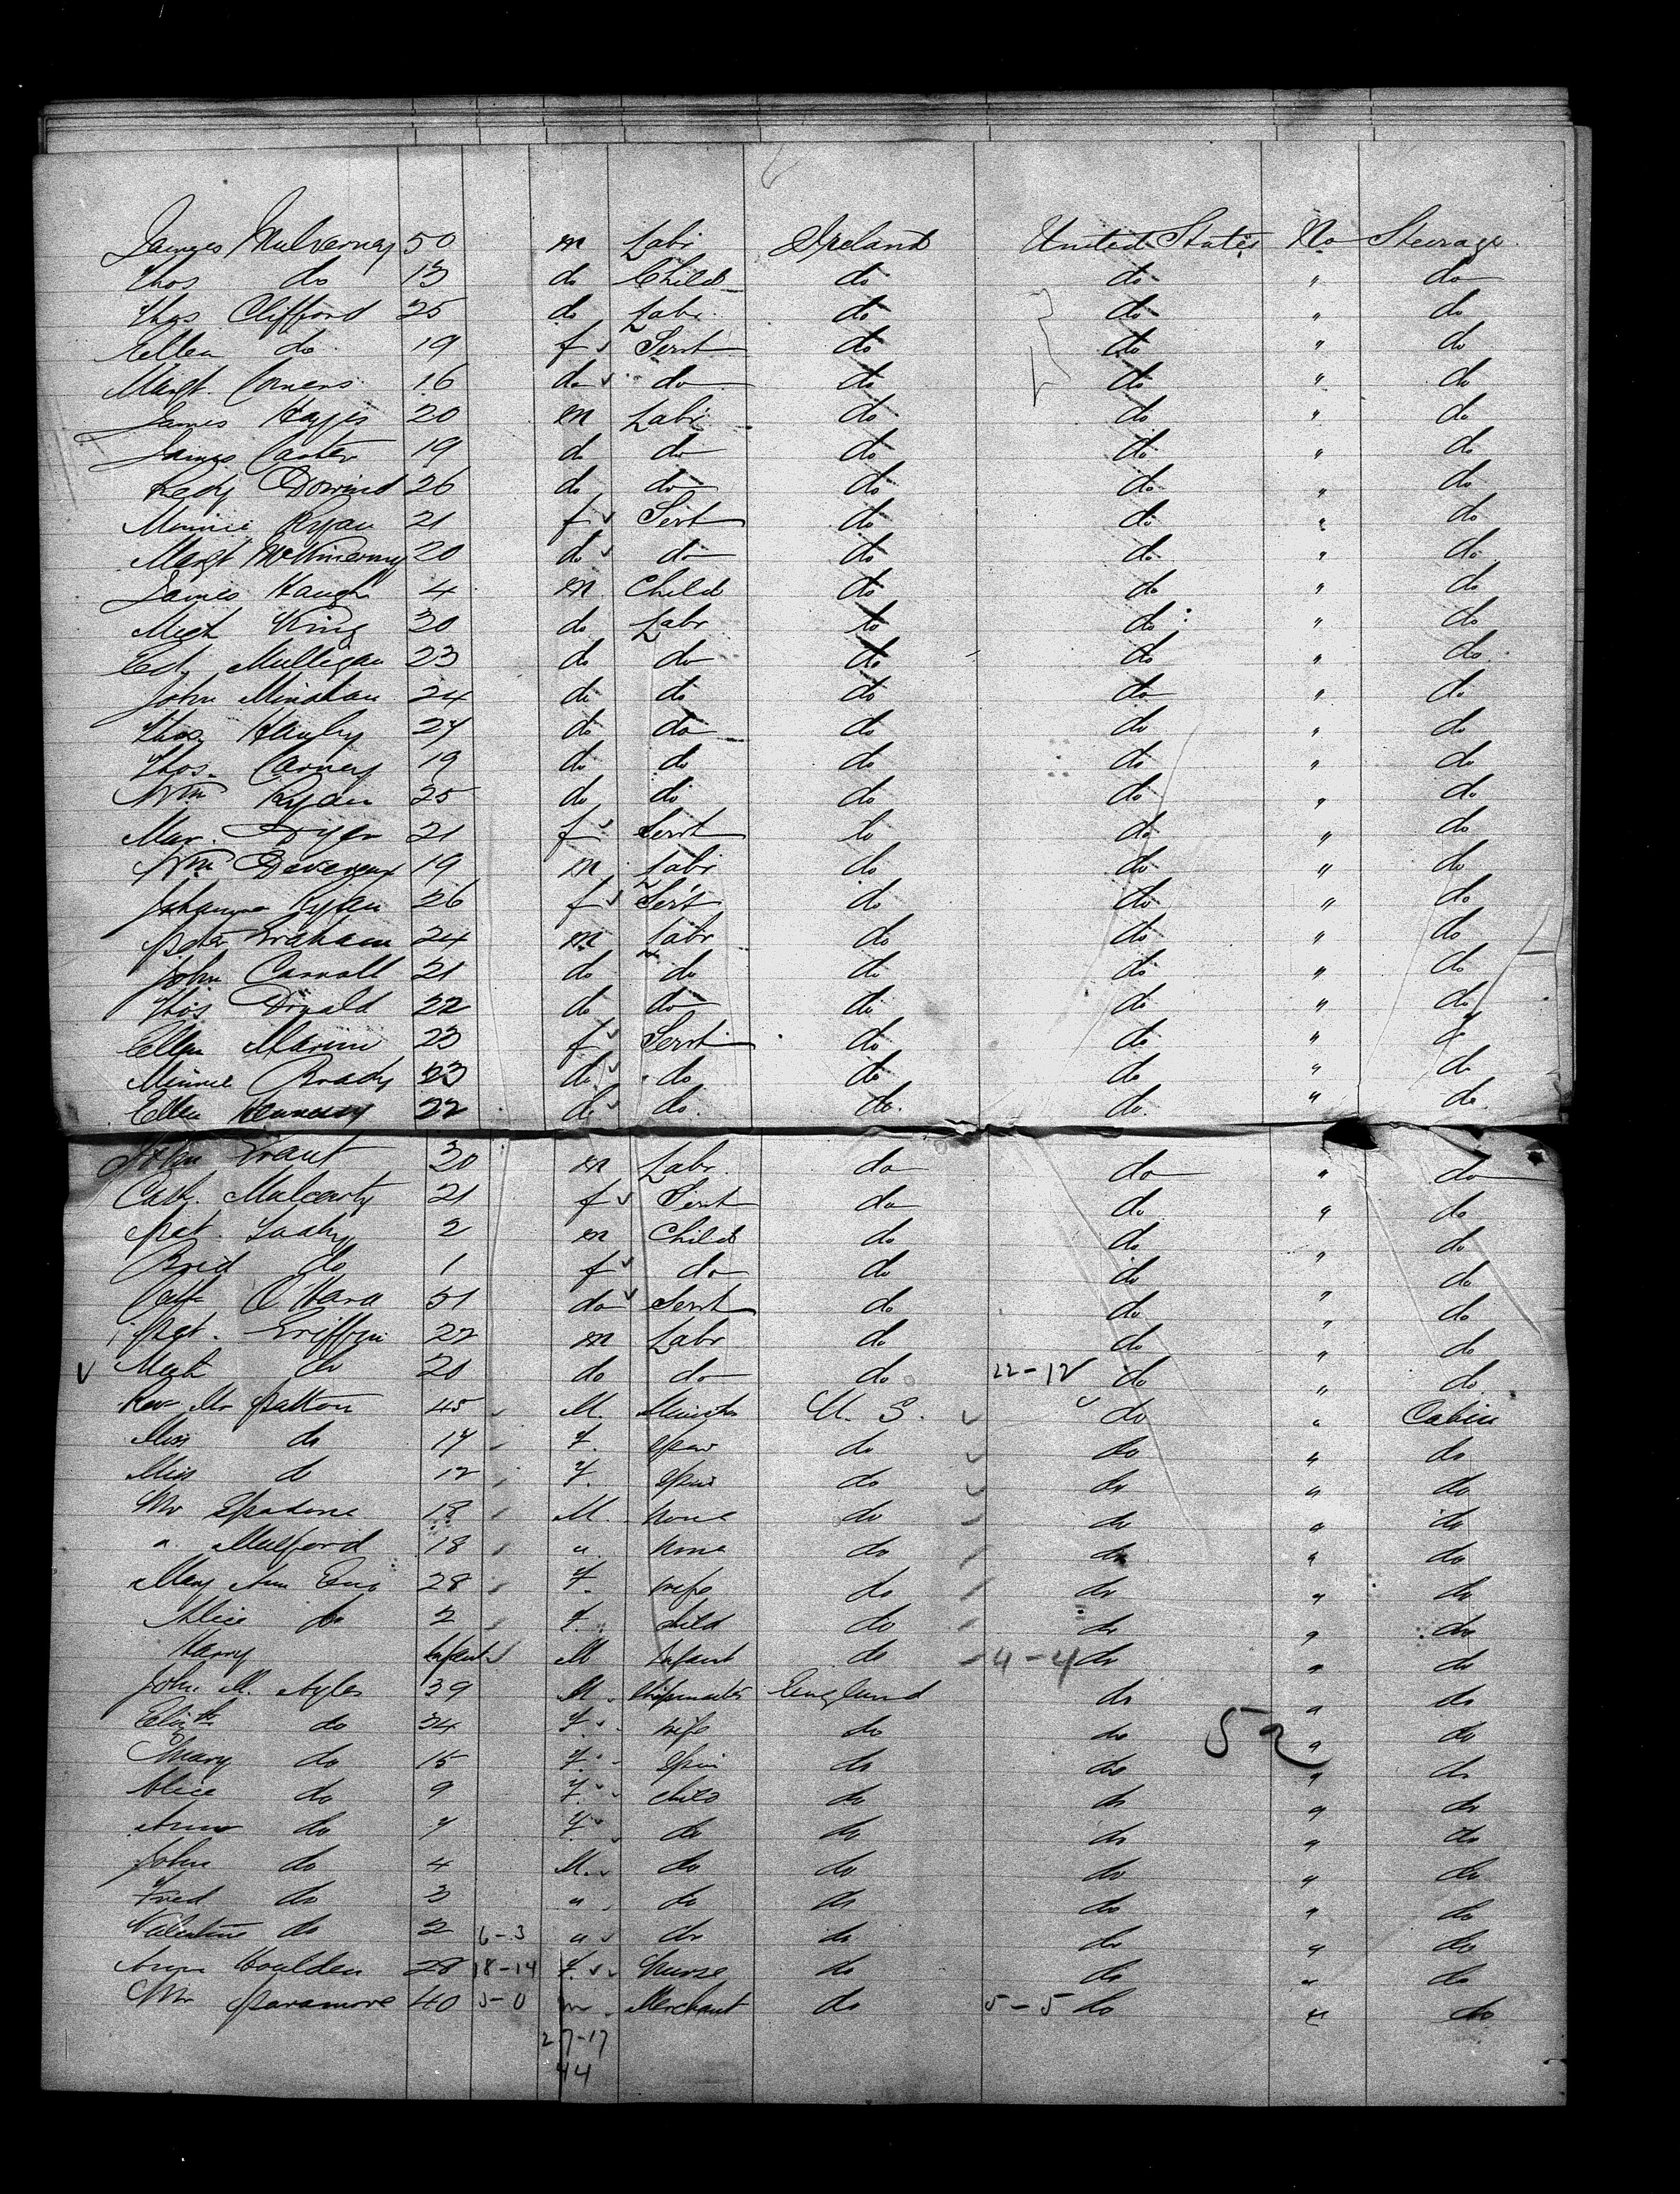 James Mulvernay 50 m Labr Ireland United States No Steerage
Thos do 13 do Child do do " do
Thos Clifford 25 do Labr do do " do
Ellen do 19 f Servt do do " do
Margt. 16 do do do do " do
James Hayes 20 m Labr do do " do
James Carter 19 do do do do " do
26 do do do do " do
Minnie Ryan 21 f Servt do do " do
Margt McKinerny 20 do do do do " do
James Haugh 4 m Child do do " do
Mich King 30 do Labr do do " do
Ed. Mulligan 23 do do do do " do
John Minahan 24 do do do do " do
Thos. Hanley 27 do do do do " do
Thos. Carney 19 do do do do " do
Wm Ryan 25 do do do do " do
Mar. Dyer 21 f Servt do do " do
Wm Devereux 19 m Labr do do " do
Johanna Ryan 26 f Servt do do " do
Peter Graham 24 m Labr do do " do
John Carroll 21 do do do do " do
Thos Donald 22 do do do do " do
Ellen 23 f Servt do do " do
Minnie Brady 23 do do do do " do
Ellen Hennessy 22 do do do do " do
John Grant 30 m Labr. do do " do
Cath. Mulcarty 21 f Servt do do " do
Pat. Leahy 2 m Child do do " do
Brid do 1 f do do do " do
Cath O'Hara 31 do Servt do do " do
Pat. Griffin 22 m Labr do do " do
Mich do 20 do do do 22-12 do " do
Rev Mr Patton 45 M. Minister U. S. do " Cabin
Miss do 17 F. Spin do do " do
Miss do 12 F. Spin do do " do
Mr Spadone 18 M. none do do " do
" Mulford 18 " none do do " do
Mary Ann 28 F. wife do do " do
Alice do 2 F. child do do " do
Harry Infant M Infant do 4-4 do " do
John M. Ayles 39 M. Shipmaster England do " do
Elizth do 34 F. wife do do " do
52
Mary do 15 F. Spin do do " do
Alice do 9 F. child do do " do
Ann do 7 F. do do do " do
John do 4 M. do do do " do
Fred do 3 " do do do " do
Valentine do 2 6-3 " do do do " do
Ann Houlden 28 18-14 F. Nurse do do " do
Mr Paramore 40 3-0 m Merchant do 5-5 do " do
27-17
44